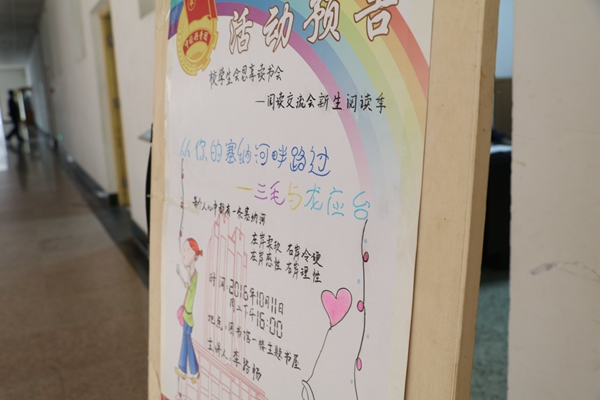 活动预告
校学生会思享读书会
—阅读交流会新生阅读季
从你的塞纳河畔路过
—三毛与龙应台
每个人心中都有一条塞纳河
左岸柔软 右岸冷硬
左岸感性 右岸理性
时间:2016年10月11日
周二下午16:00
地点:图书馆一楼主题书屋
主讲人:李路畅